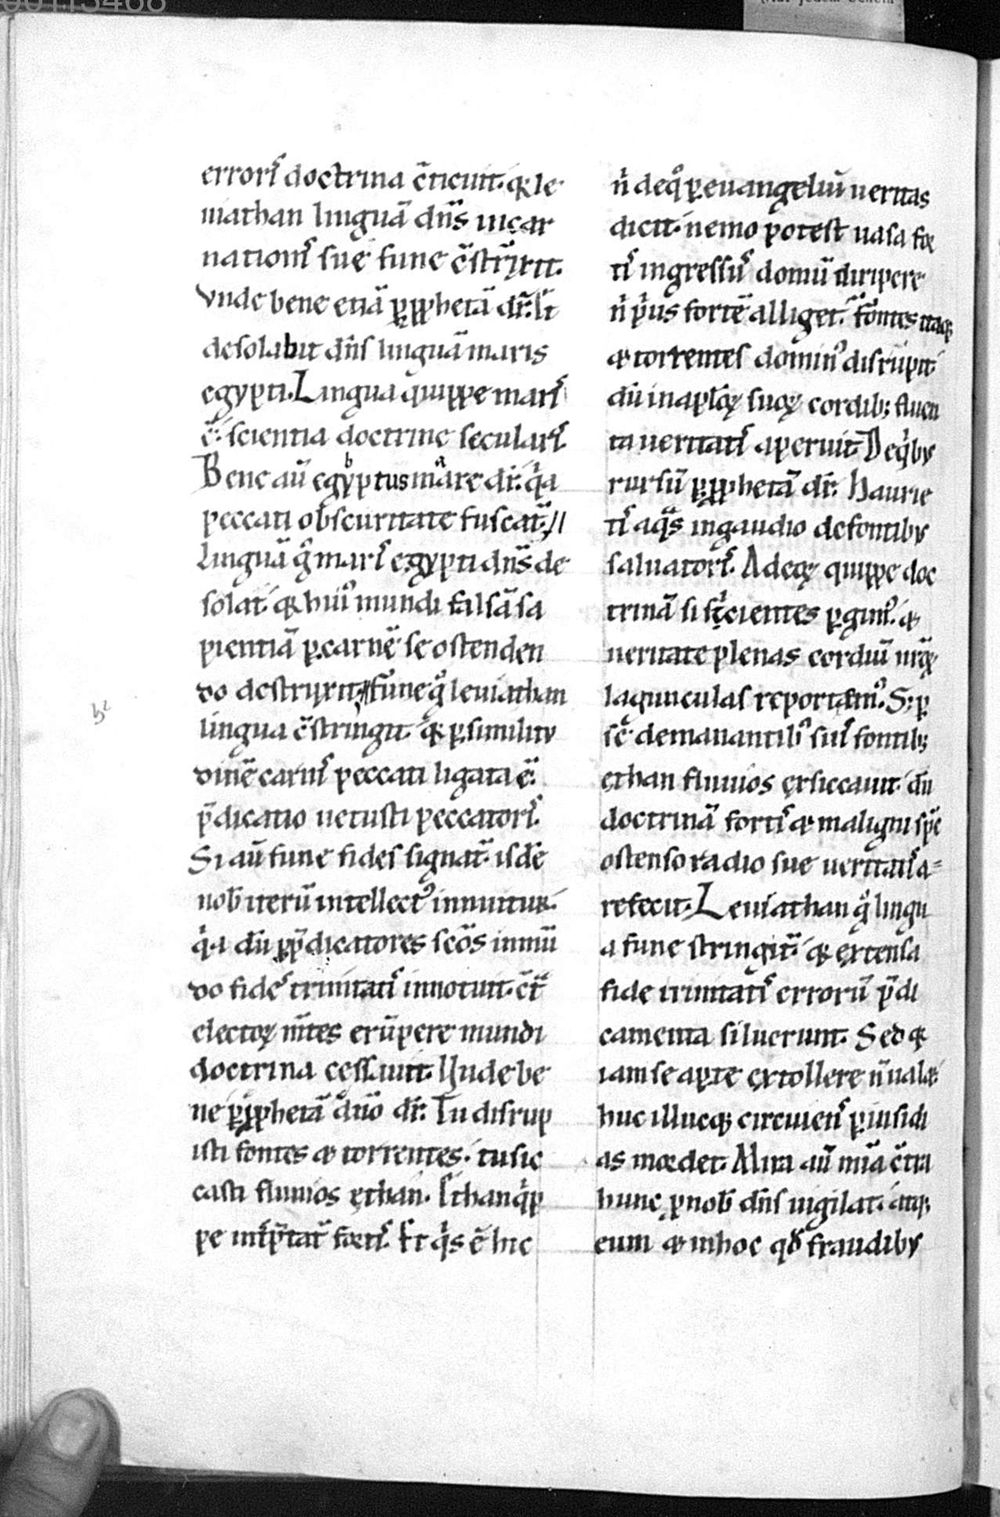 errorꝭ doctrina c̄ticuit. q̇a le
uiathan linguā dn̄s incar
nationꝭ suę fune c̄strꝰxit.
vnde bene etiā ꝑ ꝓphetā dr̄.
desolabit dn̄s linguā maris
egypti. Lingua quippe marꝭ
ē. scientia doctrinę secularꝭ
Bene aū egyptus mare dr̄. q̇a
peccati obscuritate fuscat᷑.
Linguā g̊ marꝭ egypti dn̄s de
solat. q̇a huiꝰ mundi falsā sa
pientiā ꝑ carnē se ostenden
do destruxit. fune g̊ leuiathan
lingua c̄stringit᷑. q̇a ꝑ similitu
dinē carnꝭ peccati ligata ē.
p̄dicatio uetusti peccatorꝭ.
Si aū fune fides signat᷑. isdē
nob̄ iterū intellectꝰ innuitur.
q̇a dū p̄dicatores sc̄os in mū
do fideꝭ trinitatꝭ innotuit. c̄t̄
electoꝝ m̄tes erūpere mundi
doctrina cessauit. Unde be
ne ꝑ ꝓphetā dn̄o dr̄. Tu disrup
isti fontes & torrentes. tu sic
casti fluuios ęthan. Ethan q̇p
pe int̄p̄tat᷑ fortꝭ. Et q̇s ē hic
n̄ de q̊ ꝑ euangeliū ueritas
dicit. nemo potest uasa for
tꝭ ingressꝰ domū diripere
n̄ ṗus fortē alliget. Fontes itaq;
& torrentes dominꝰ disrupit.
dū in apl̄oꝝ suoꝝ cordib; fluen
ta ueritatꝭ aperuit. De q̇bꝰ
rursū ꝑ ꝓphetā dr̄. Haurie
tꝭ aquas in gaudio de fontibꝰ
saluatorꝭ. Ad eoꝝ quippe doc
trinā sitientes ꝑgimꝰ. &
ueritate plenas cordiū nr̄oꝝ
lagunculas reportamꝰ. S; ꝑ
se demanantibꝰ suꝭ fontib;
ęthan fluuios exsiccauit. dū
doctrinā fortꝭ & maligni sp̄c
ostenso radio suę ueritatꝭ a-
refecit. Leuiathan g̊ lingu
a fune stringit᷑. q̇a extensa
fide trinitatꝭ errorū p̄di
camenta siluerunt. Sed q̇a
iam se aperte extollere n̄ ualet.
huc illucq; circuiens ꝑ insidi
as mordet. Mira aū mīa c̄tra
hunc ꝓ nob̄ dn̄s uigilat. atq;
eum & in hoc qd̄ fraudibꝰ